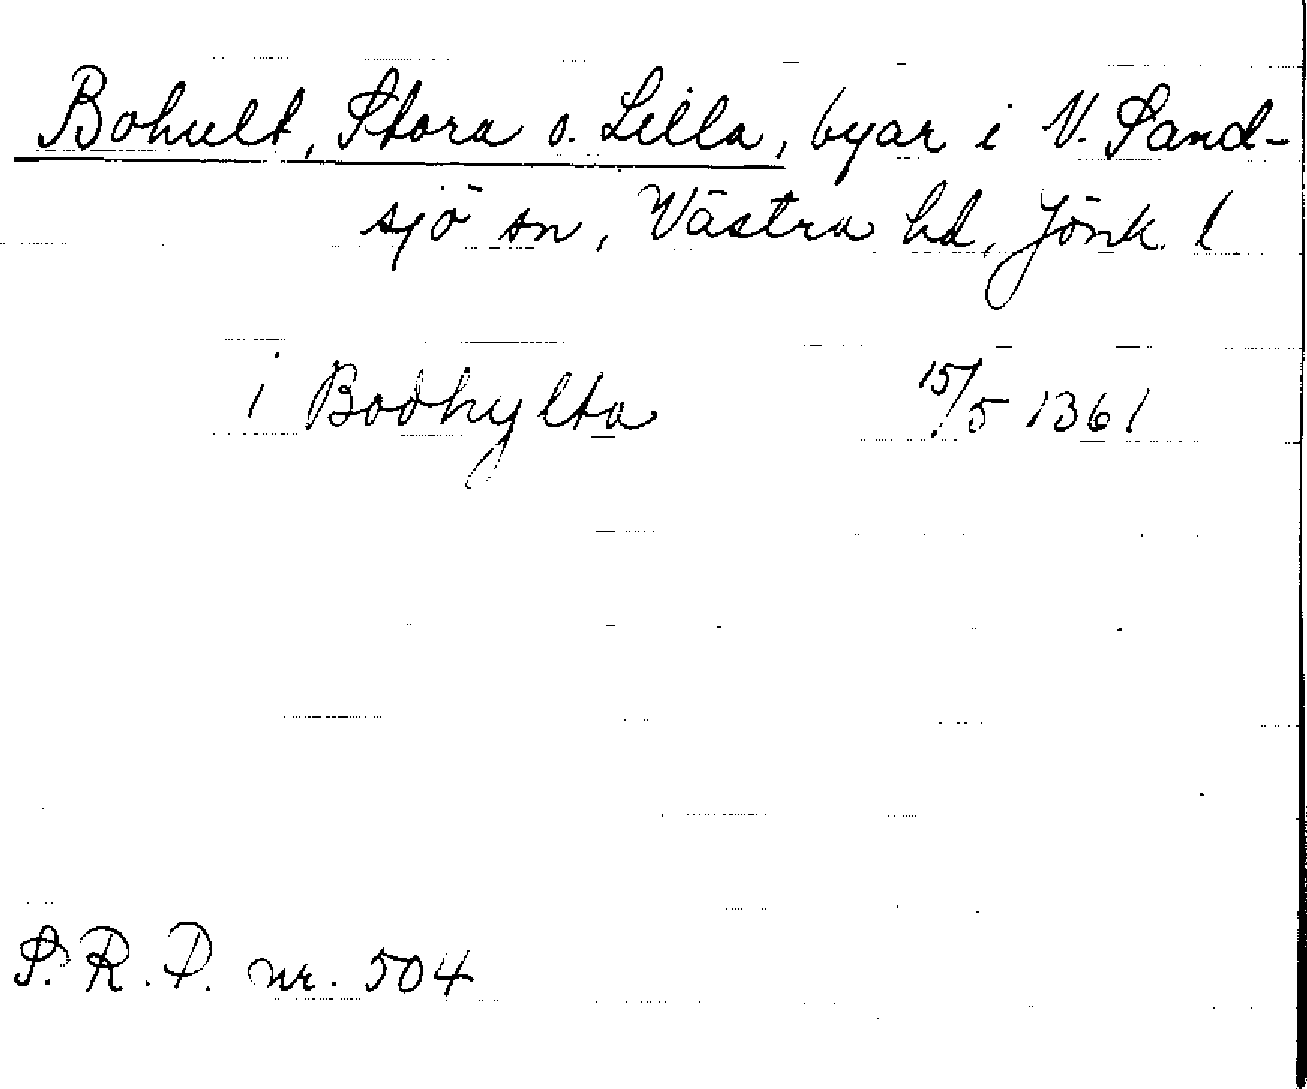 Bohult, Stora o. Lilla, byar i V. Sand-
sjö sn, Västra hd, Jönk. l
i Bodhylta 15/5 1361
S. R. P. nr. 504